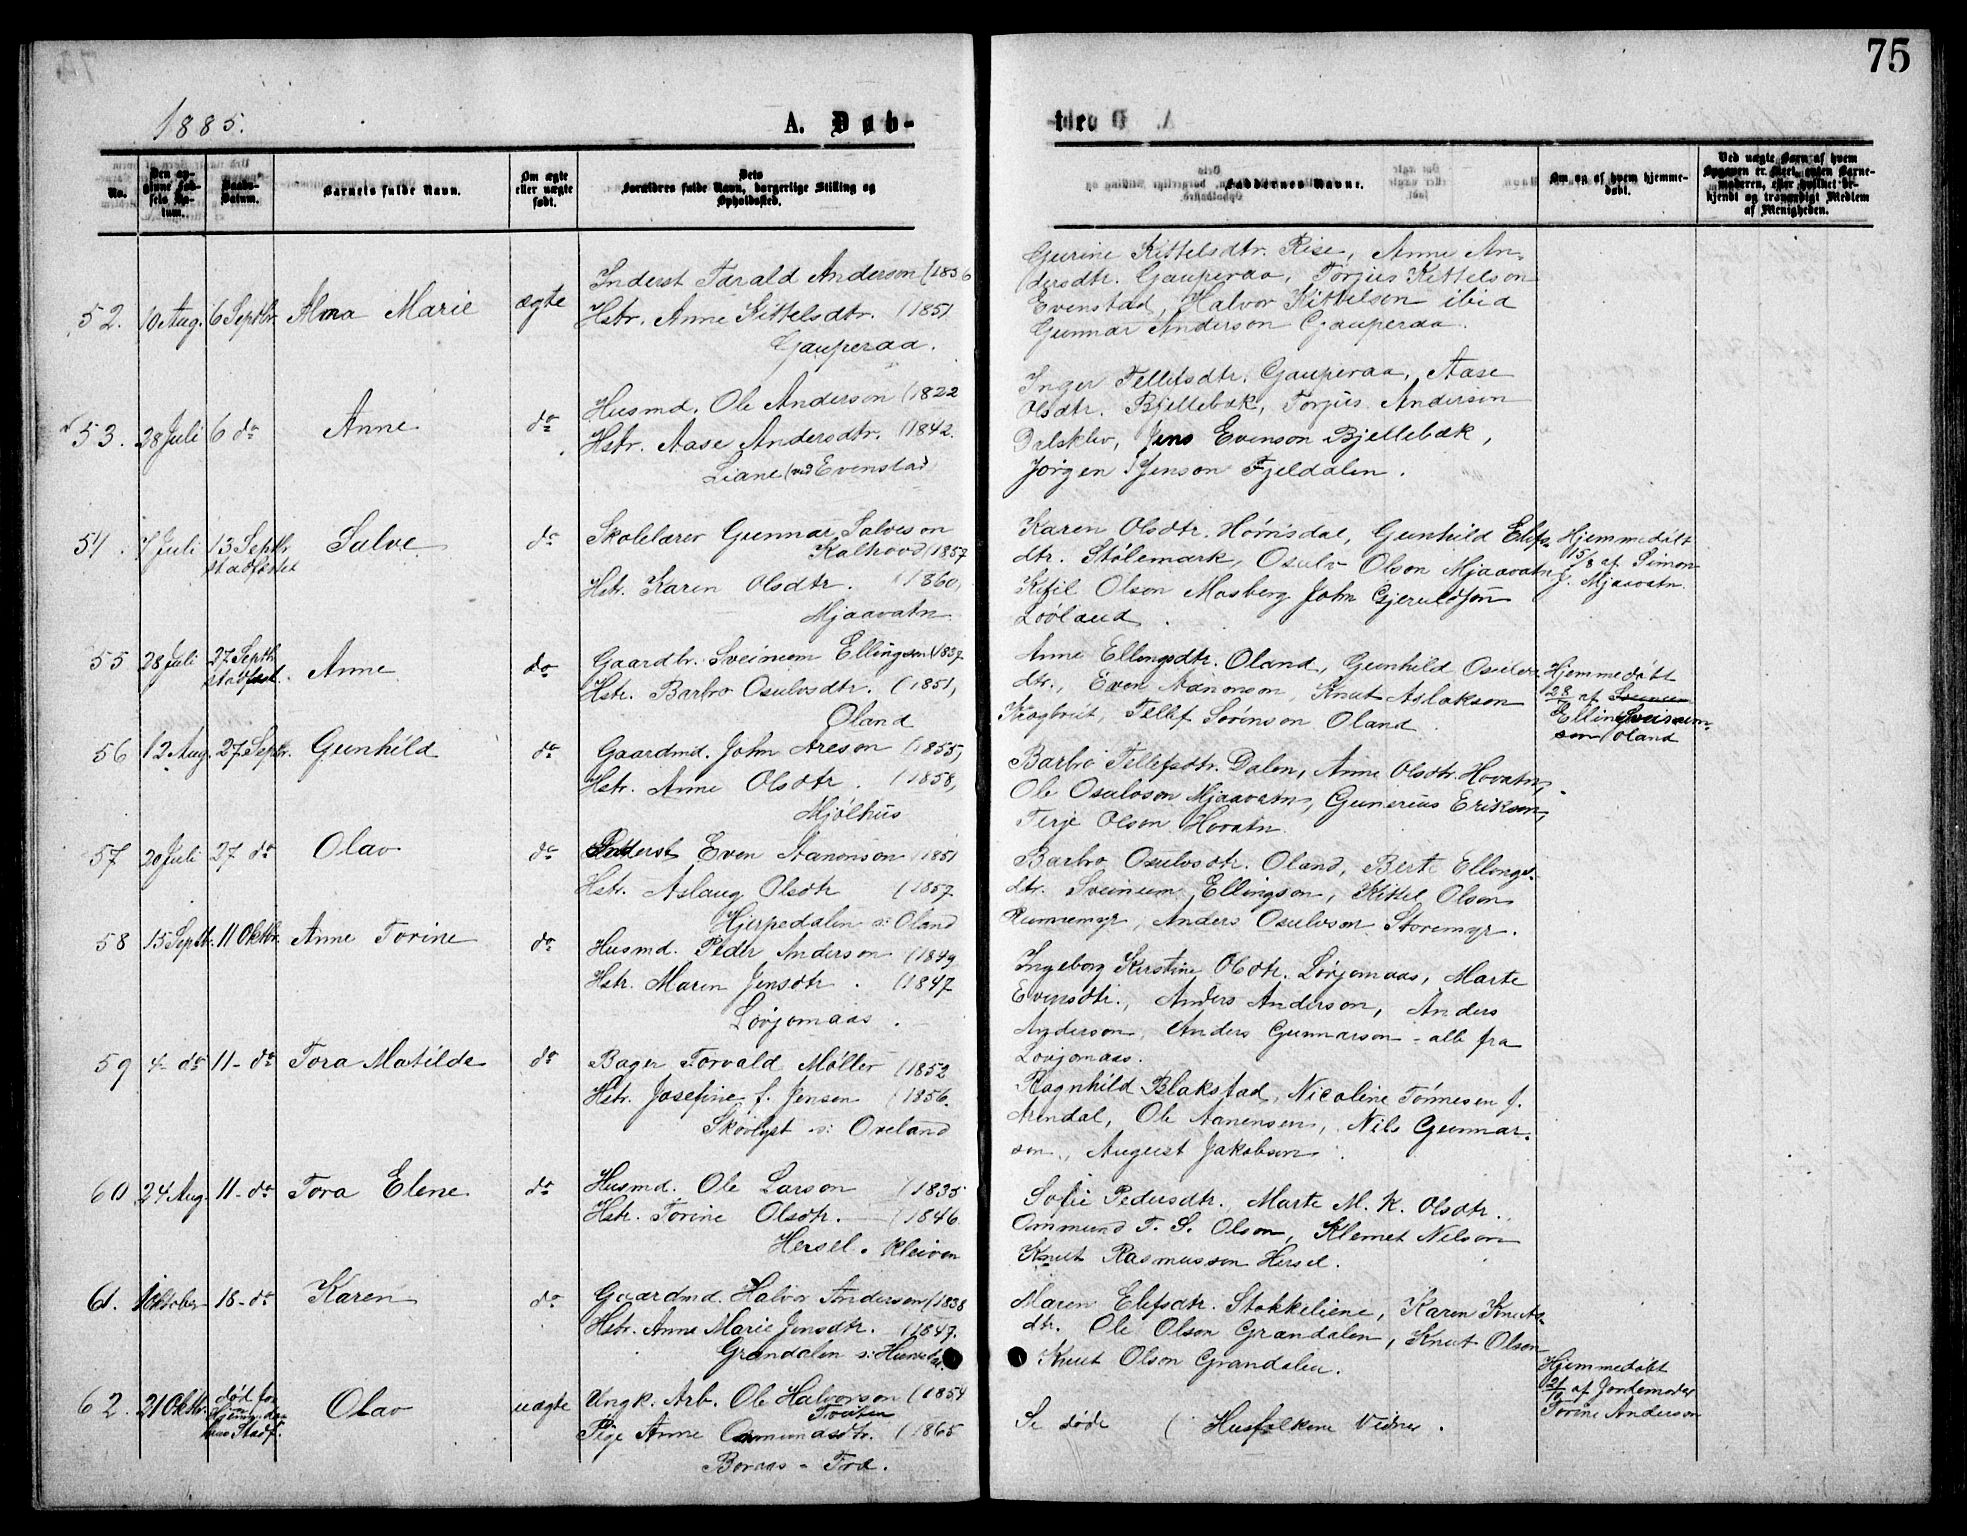 75
1885.
A. Døb-
No.
Den op-
givne Fød-
sels Da-
tum.
Daabs-
Datum.
Barnets fulde Navn.
Om ægte
eller uægte
født.
Dets
Forældres fulde Navn, borgerlige Stilling og
Opholdssted.
Faddernes Navne.
Om og af hvem hjemme-
døbt.
Ved uægte Børn af hvem
Opgaven er skeet, enten Barne-
moderen, eller hvilket be-
kjendt og troværdigt Medlem
af Menigheden.
52. 10 Aug. 6 Septbr. Alma Marie ægte
Inderst Tarald Anderson (1856
Hstr. Anne Kittelsdtr. (1851
Gauperaa.
Gurine Kittelsdtr. Rise, Anne An-
dersdtr. Gauperaa, Torjus Kittelson
Evenstad, Halvor Kittelson ibid
Gunnar Anderson Gauperaa.
53. 28 Juli 6 do Anne do
Husmd. Ole Anderson (1822
Hstr. Aase Andersdtr. (1842.
Liane (ved Evenstad
Inger Tellefsdtr. Gauperaa, Aase
Olsdtr. Bjellebæk, Torjus Anderson
Dalsklev, Jens Evenson Bjellebæk,
Jørgen Jenson Fjeldalen.
54. 7 Juli 13 Septbr. Salve do
stadfæstet
Skolelærer Gunnar Salveson
Kalhovd (1857
Hstr. Karen Olsdtr. (1860,
Mjaavatn
Karen Olsdtr. Hørrisdal, Gunhild Elefs-
dtr. Stølemark, Osulv Olson Mjaavatn,
Kitil Olson Mosberg John Gjeruldsøn
Løvland.
Hjemmedøbt
15/8 af Simon
J. Mjaavatn.
55 28 Juli 27 Septbr. Anne do
stadfæst.
Gaardbr. Sveinum Ellingson (1837
Hstr. Barbro Osulvsdtr. (1851,
Oland
Anne Ellingsdtr. Oland, Gunhild Osulvs
dtr., Even Aanonson, Knut Aslakson
Kragbrøt, Tellef Sørenson Oland
Hjemmedøbt
af Sveinum
Elling Sveinum-
son Oland
56 12 Aug. 27 Septbr. Gunhild do
Gaardmd. John Areson (1855,
Hstr. Anne Olsdtr. (1858,
Mjølhus
Barbro Tellefsdtr. Dalen, Anne Olsdtr. Hovatn,
Ole Osulvson Mjaavatn, Gunerius Erikson,
Terje Olson Hovatn.
57 20 Juli 27 do Olav do
Inderst Even Aanonson (1851
Hstr. Aslaug Olsdtr (1857.
Hjerpedalen s: Oland
Barbro Osulvsdtr. Oland, Berte Ellings-
dtr. Sveinum Ellingson, Kittel Olson
Rennemyr, Anders Osulvson Storemyr.
58 15 Septbr. 11 Oktbr. Anne Torine do
Husmd. Peder Anderson (1849
Hstr. Maren Jensdtr. (1847
Løvjomaas.
Ingeborg Kerstine Olsdtr. Løvjomaas, Marte
Evensdtr., Anders Anderson, Anders
Anderson, Anders Gunnarson - alle fra
Løvjomaas.
59 4 do 11 - do Tora Matilde do
Bager Torvald Møller (1852
Hstr. Josefine f. Jensen (1856.
Skovlyst s: Oveland
Ragnhild Blakstad, Nicoline Tønnesen f.
Arendal, Ole Aanensen, Nils Gunnar-
son, August Jakobsen.
60 24 Aug. 11 - do Tora Elene do
Husmd. Ole Larson (1835
Hstr. Torine Olsdtr. (1846
Hersel. Kleiven
Sofie Pedersdtr. Marte M. K. Olsdtr.,
Ommund T. S. Olson, Klemet Nilson
Knut Rasmusson Hersel.
61. 1 Oktober 18 - do Karen do
Gaardmd. Halvor Anderson (1838
Hstr. Anne Marie Jensdtr. (1847.
Grændalen s:
Maren Elefsdtr. Stokkeliene, Karen Knuts-
dtr. Ole Olson Grændalen, Knut Olson
Knut Olson Grændalen.
62. 21 Oktbr. død før Olav uægte
Hjem.daa
bens Stadf.
Ungk. Arb. Ole Halvorson (1854
Tveiten
Pige Anne Ommundsdtr. (1865
Boraas - Frol.
Se døde ( Husfolkene Vidner.
Hjemmedøbt
21/10 af Jordemoder
Torine Anderson